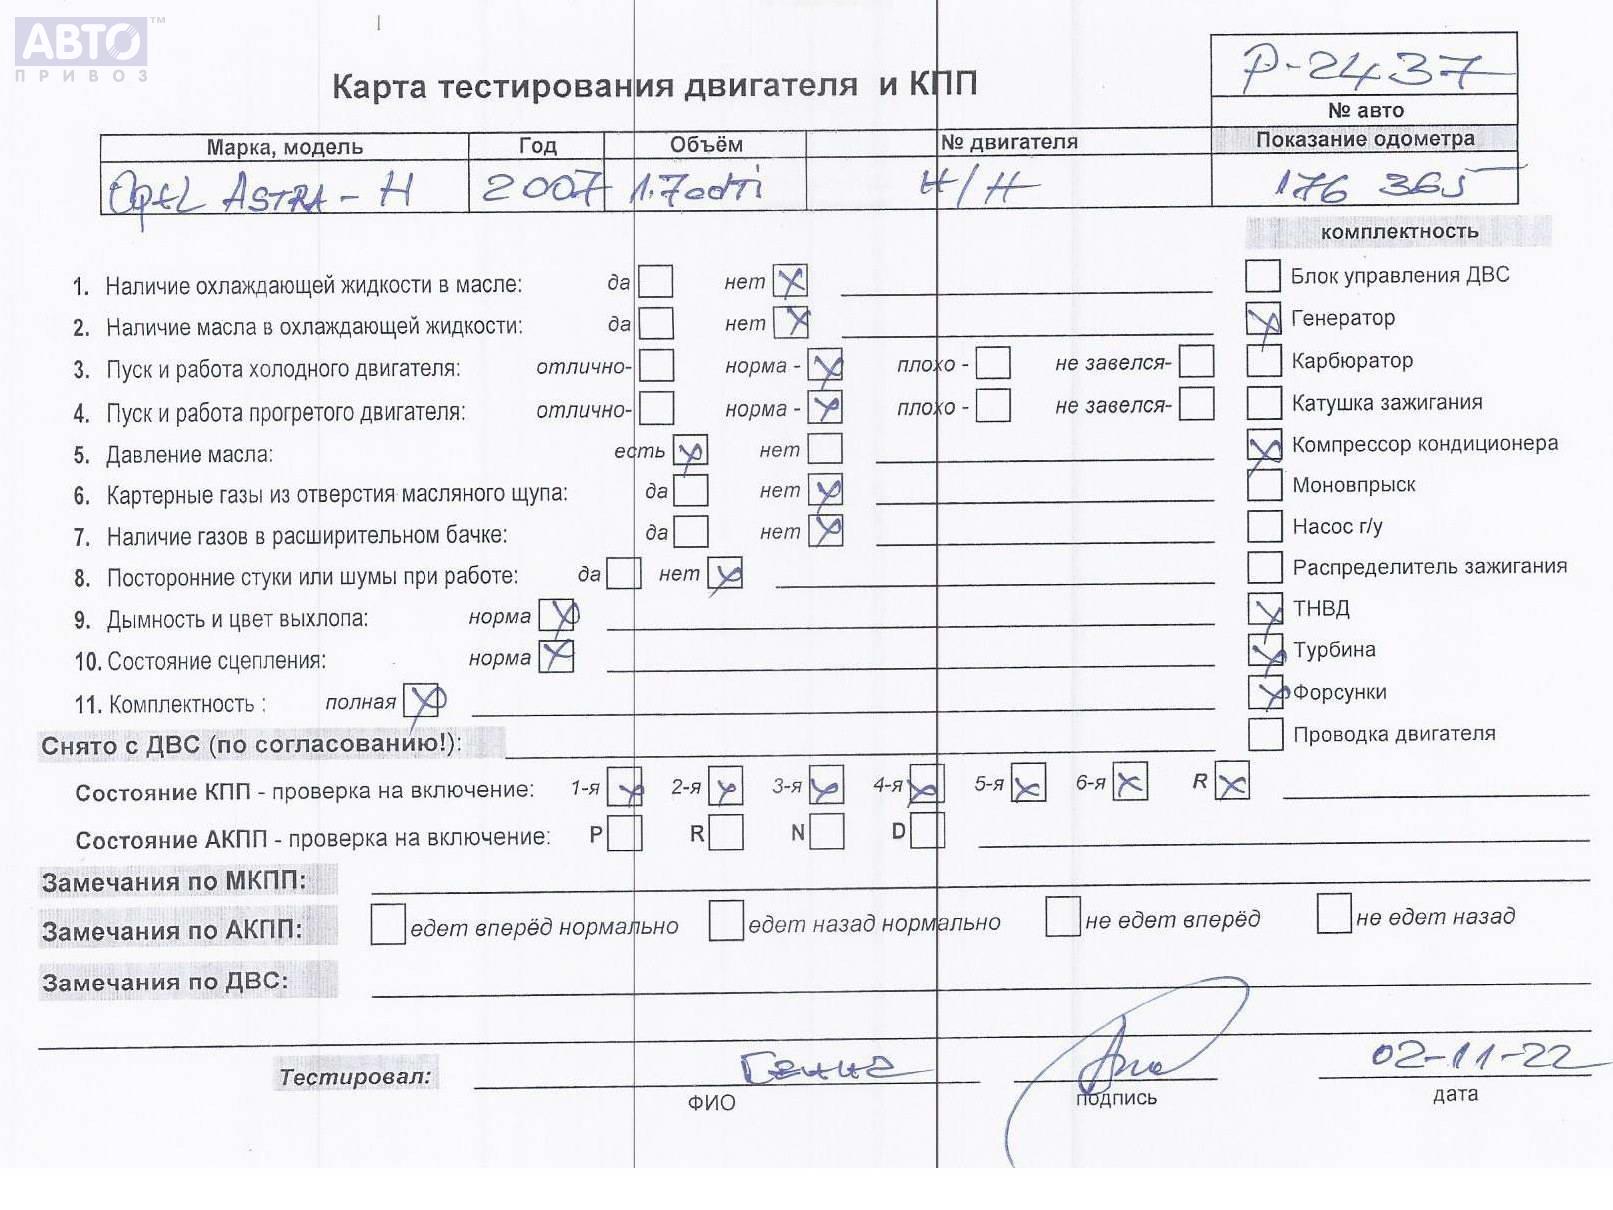 АВТО™
ПРИВОЗ
Р-2437
Карта тестирования двигателя и КПП
№ авто
Марка, модель Год Объём № двигателя Показание одометра
Opel ASTRA-H 2007 1.7cdti Н/Н 176 365
комплектность
1. Наличие охлаждающей жидкости в масле: да нет
Блок управления ДВС
2. Наличие масла в охлаждающей жидкости: да нет
Генератор
3. Пуск и работа холодного двигателя: отлично- норма - плохо - не завелся-
Карбюратор
4. Пуск и работа прогретого двигателя: отлично- норма - плохо - не завелся-
Катушка зажигания
5. Давление масла: есть нет
Компрессор кондиционера
6. Картерные газы из отверстия масляного щупа: да нет
Моновпрыск
7. Наличие газов в расширительном бачке: да нет
Насос г/у
8. Посторонние стуки или шумы при работе: да нет
Распределитель зажигания
9. Дымность и цвет выхлопа: норма
ТНВД
10. Состояние сцепления: норма
Турбина
11. Комплектность : полная
Форсунки
Снято с ДВС (по согласованию!):
Проводка двигателя
Состояние КПП - проверка на включение: 1-я 2-я 3-я 4-я 5-я 6-я R
Состояние АКПП - проверка на включение: P R N D
Замечания по МКПП:
Замечания по АКПП: едет вперёд нормально едет назад нормально не едет вперёд не едет назад
Замечания по ДВС:
Тестировал: Гена 02-11-22
ФИО подпись дата